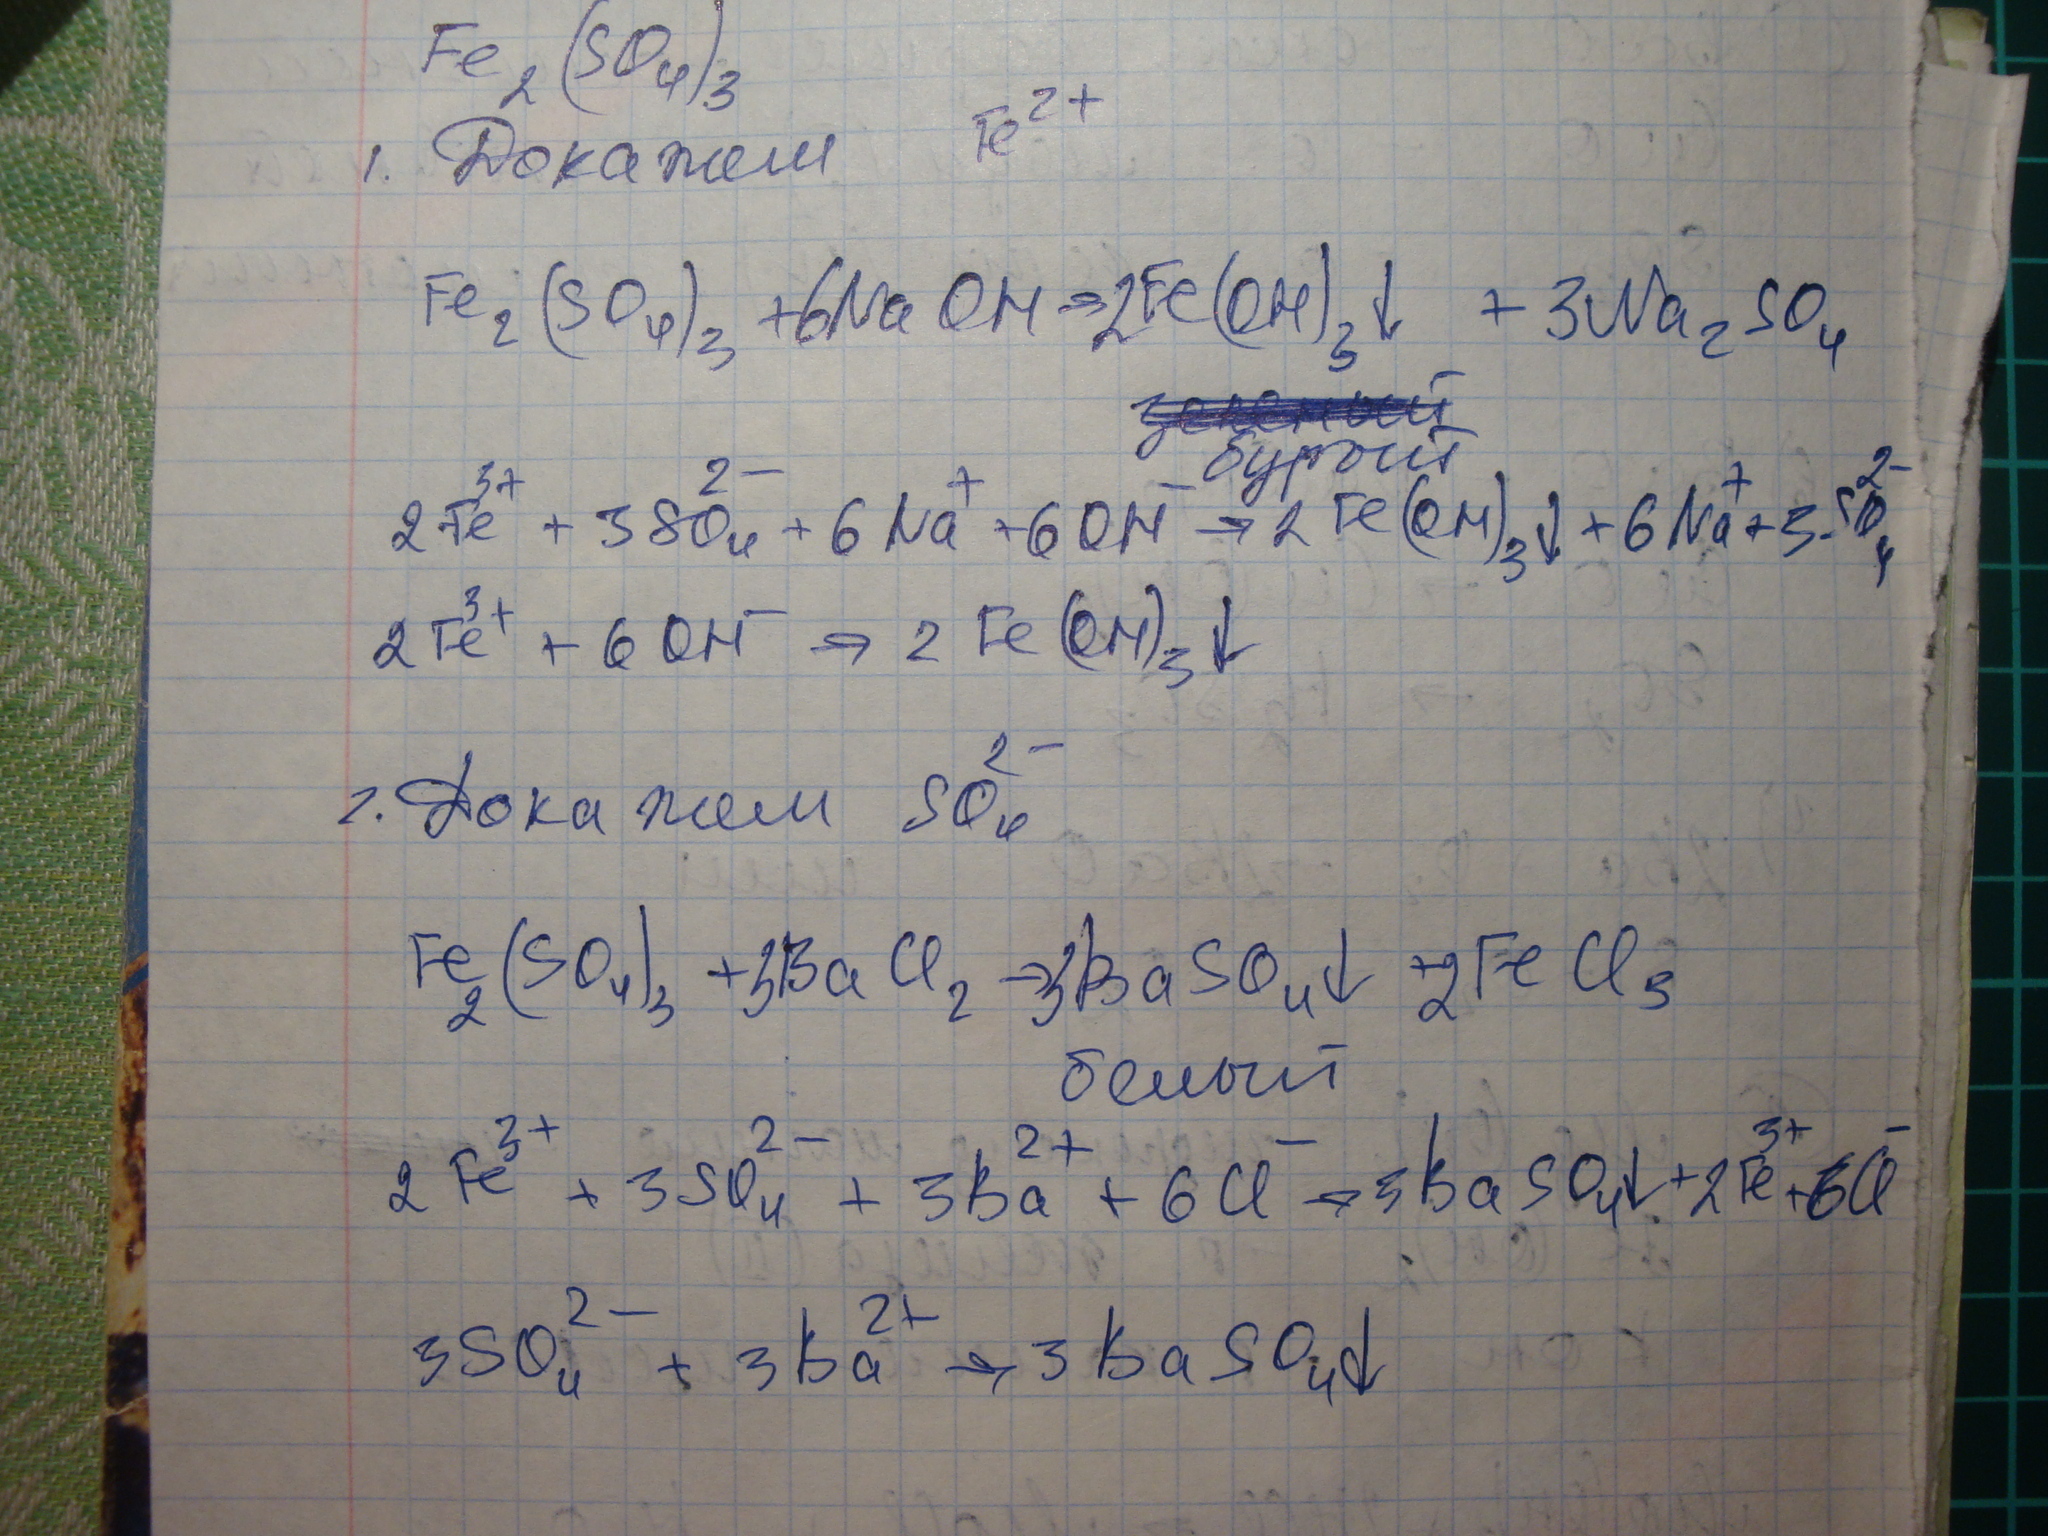 Fe₂(SO₄)₃
1. Докажем Fe²⁺
Fe₂(SO₄)₃ + 6NaOH → 2Fe(OH)₃↓ + 3Na₂SO₄
зеленый
бурый
2Fe³⁺ + 3SO₄²⁻ + 6Na⁺ + 6OH⁻ → 2Fe(OH)₃↓ + 6Na⁺ + 3SO₄²⁻
2Fe³⁺ + 6OH⁻ → 2Fe(OH)₃↓
2. Докажем SO₄²⁻
Fe₂(SO₄)₃ + 3BaCl₂ → 3BaSO₄↓ + 2FeCl₃
белый
2Fe³⁺ + 3SO₄²⁻ + 3Ba²⁺ + 6Cl⁻ → 3BaSO₄↓ + 2Fe³⁺ + 6Cl⁻
3SO₄²⁻ + 3Ba²⁺ → 3BaSO₄↓